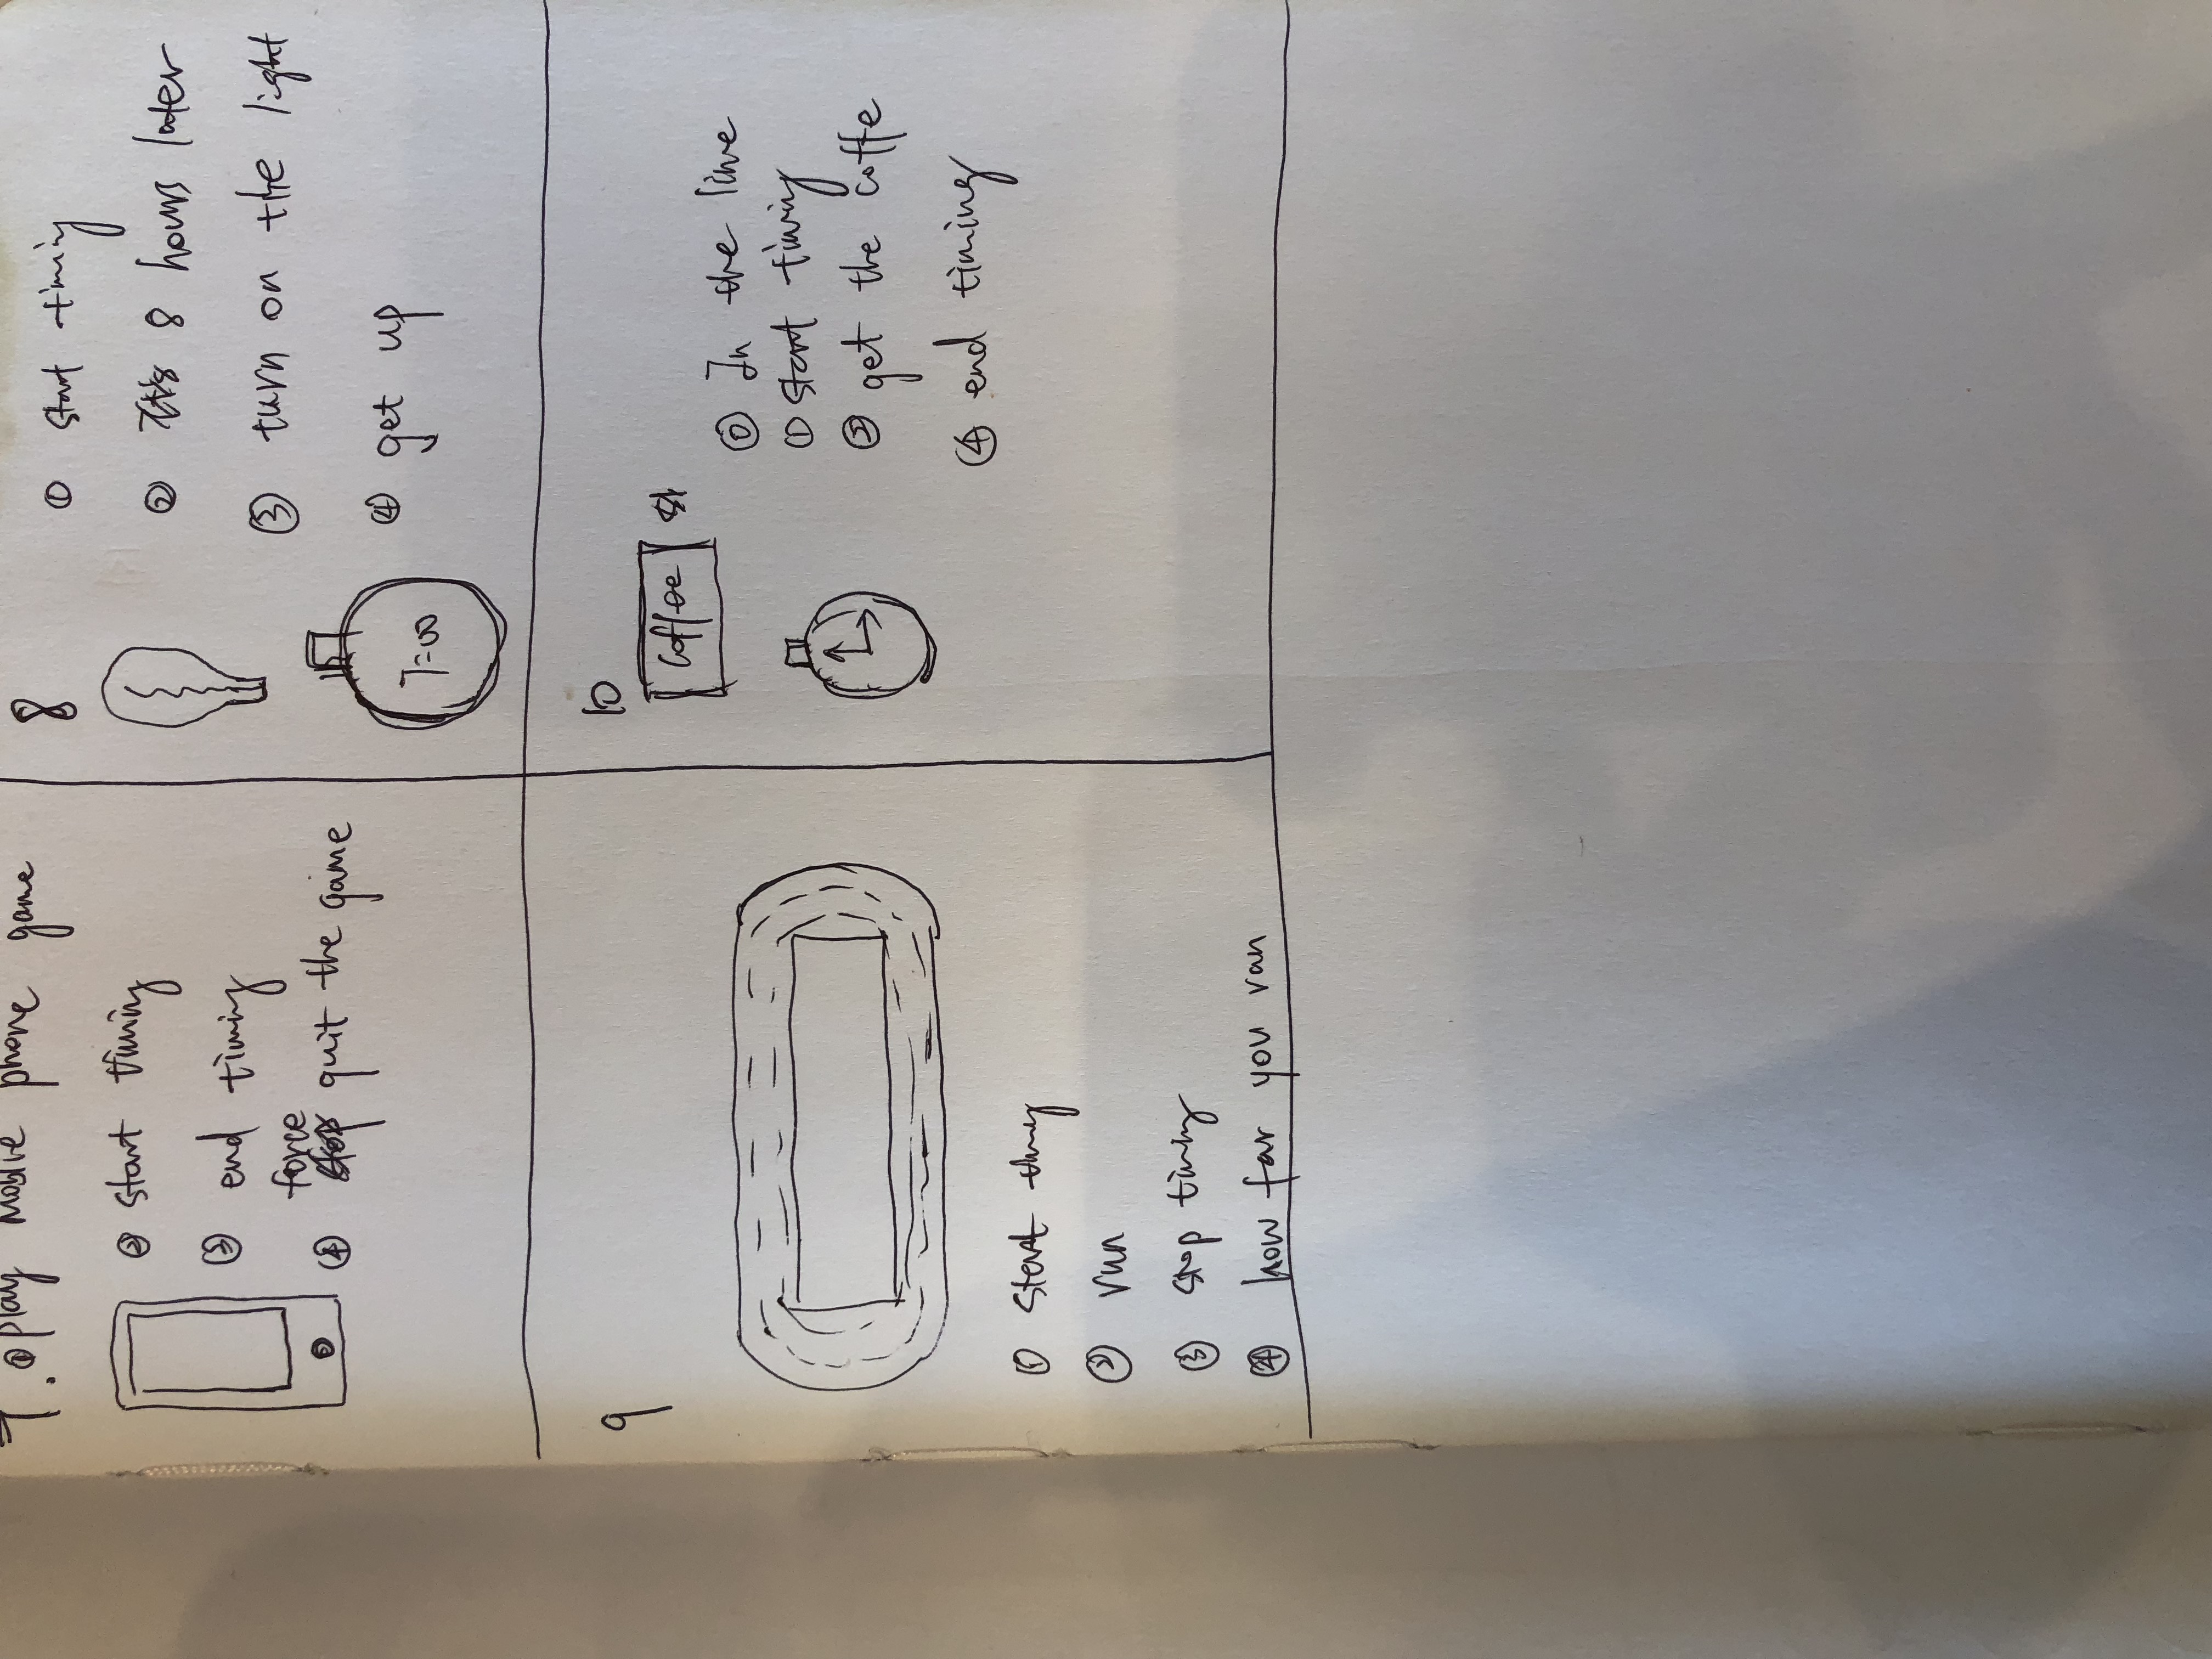 7. ① play mobile phone game
② start timing
③ end timing
force
④ stop quit the game
8
① start timing
② It's 8 hours later
③ turn on the light
④ get up
7:00
9
① start timing
② run
③ stop timing
④ how far you ran
10
coffee st
⓪ In the line
① start timing
② get the coffe
④ end timing